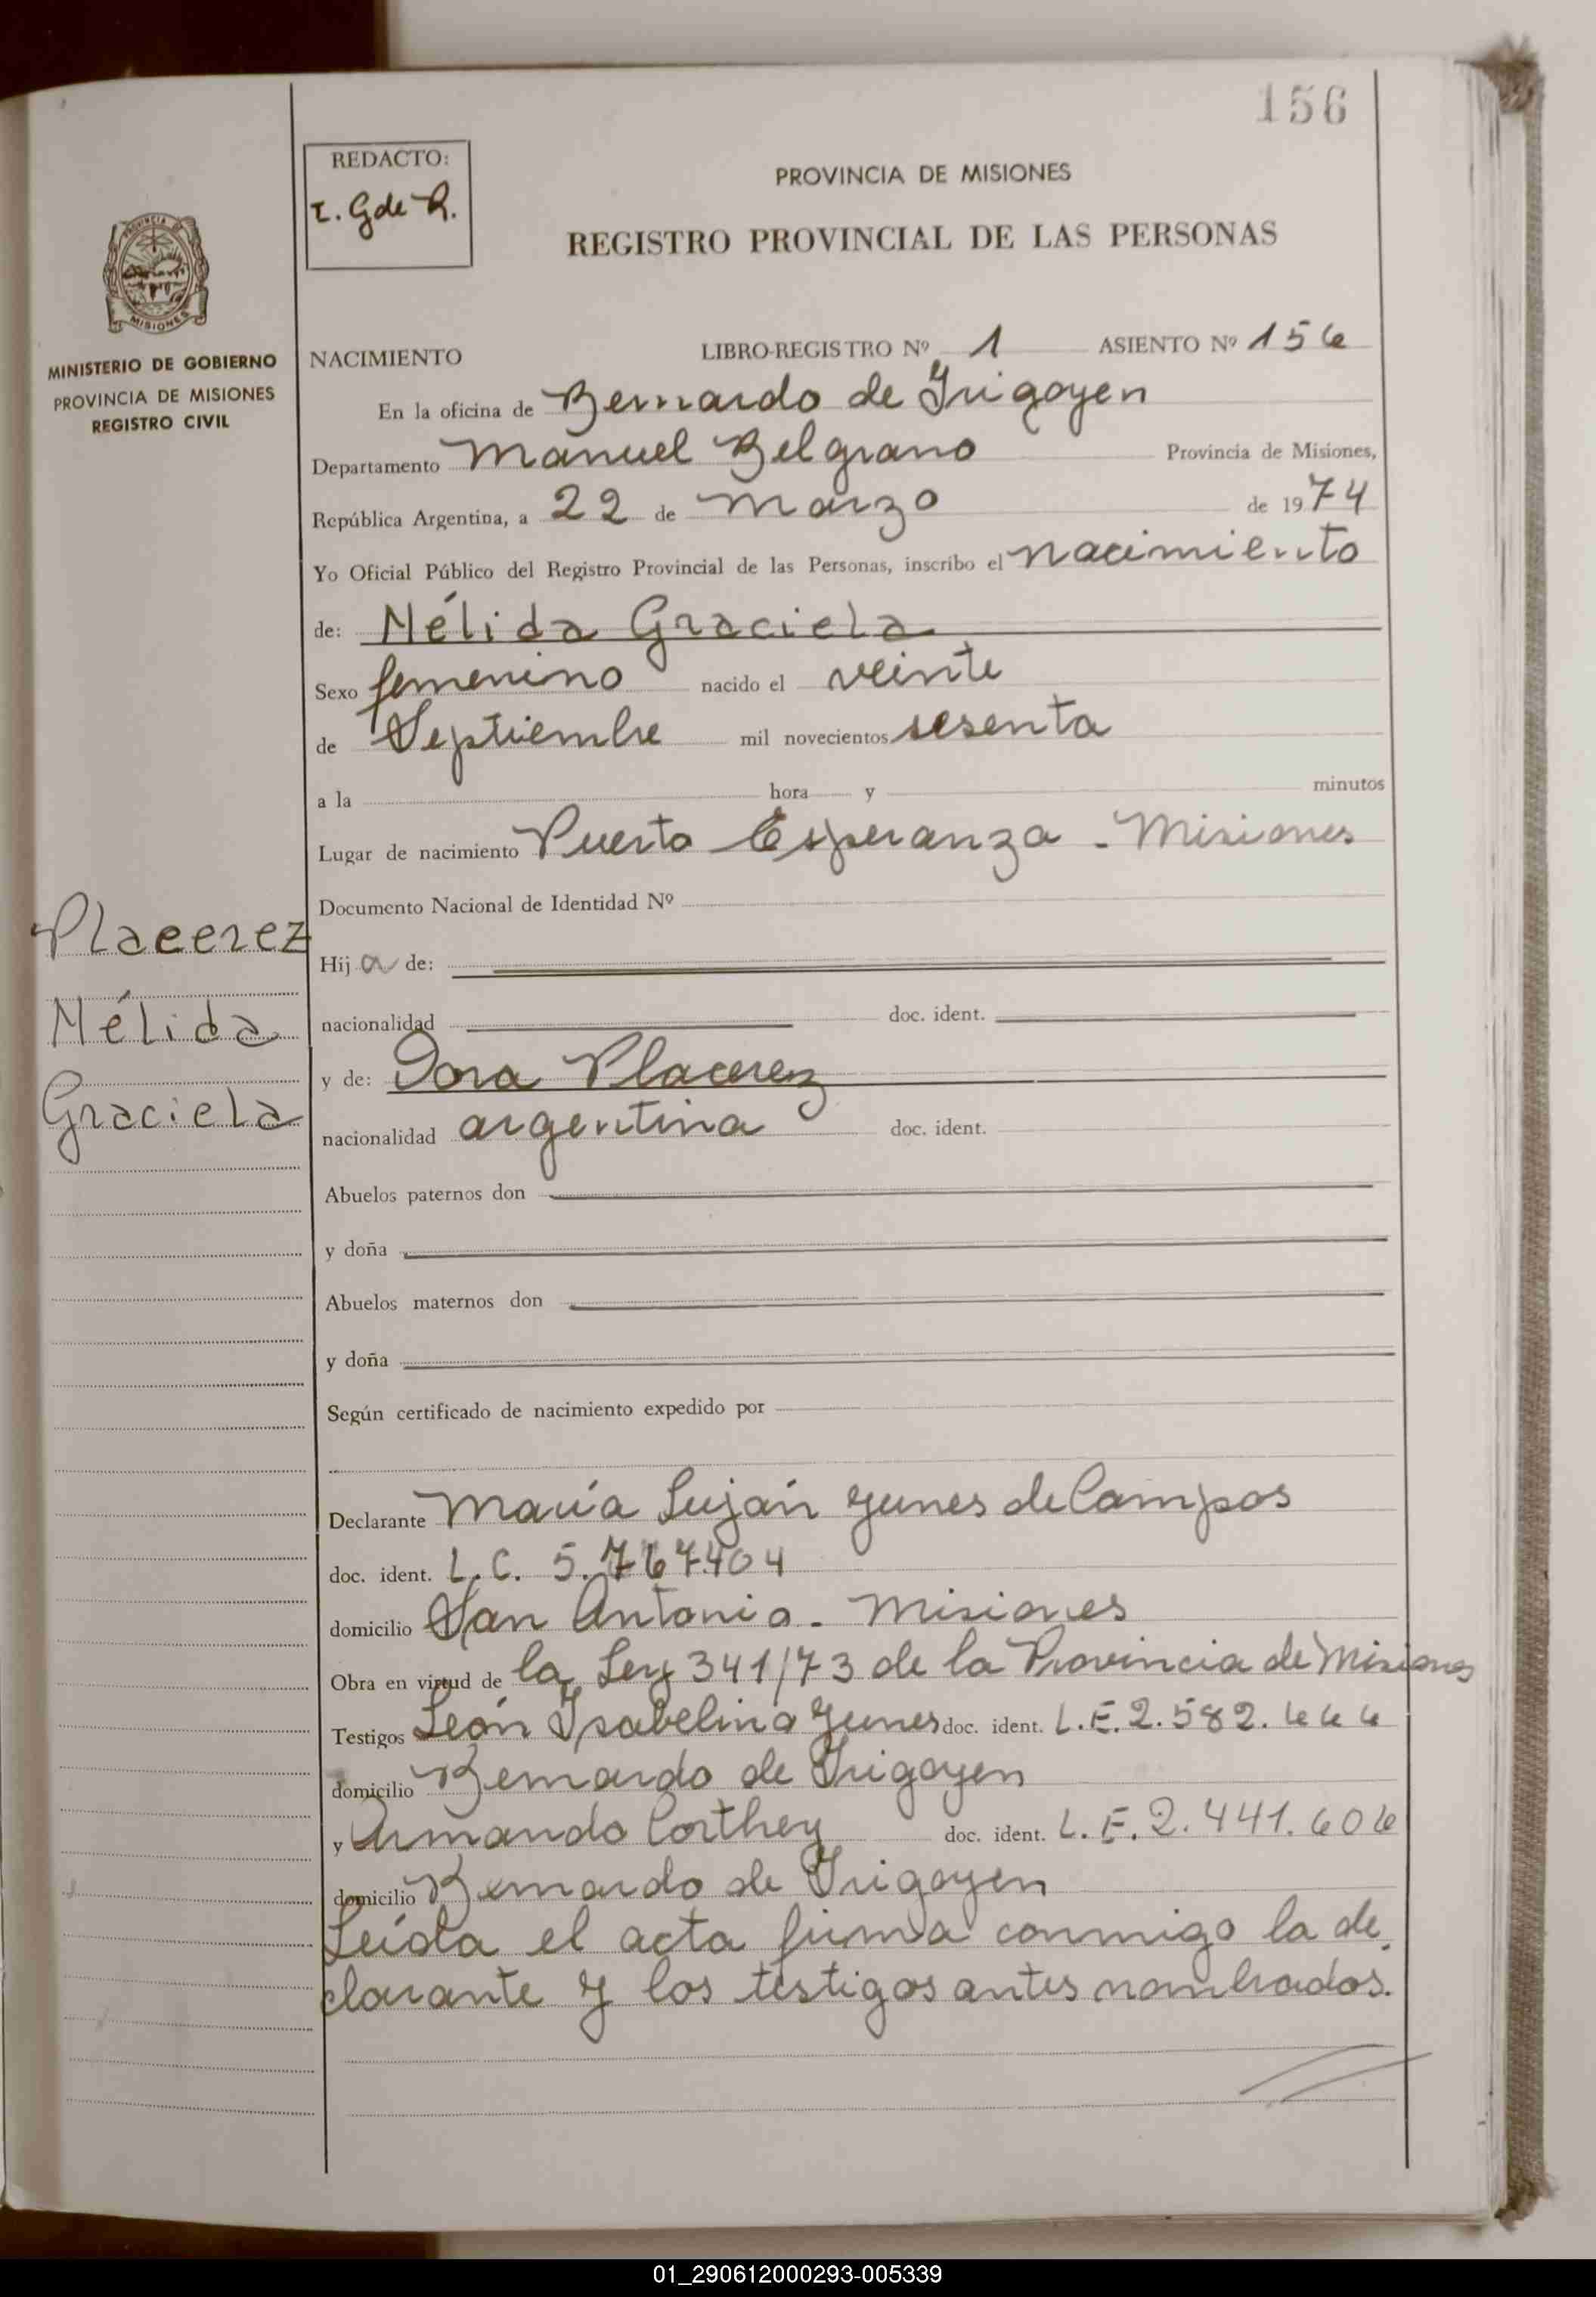 156
REDACTO:
T. G de R.
PROVINCIA DE MISIONES
REGISTRO PROVINCIAL DE LAS PERSONAS
MISIONES
MINISTERIO DE GOBIERNO
PROVINCIA DE MISIONES
REGISTRO CIVIL
NACIMIENTO LIBRO-REGISTRO Nº 1 ASIENTO Nº 156
En la oficina de Bernardo de Irigoyen
Departamento Manuel Belgrano Provincia de Misiones,
República Argentina, a 22 de Marzo de 1974
Yo Oficial Público del Registro Provincial de las Personas, inscribo el nacimiento
de: Nélida Graciela
Sexo femenino nacido el veinte
de Septiembre mil novecientos sesenta
a la hora y minutos
Lugar de nacimiento Puerto Esperanza - Misiones
Documento Nacional de Identidad Nº
Placerez
Nélida
Graciela
Hija de:
nacionalidad doc. ident.
y de: Dora Placerez
nacionalidad argentina doc. ident.
Abuelos paternos don
y doña
Abuelos maternos don
y doña
Según certificado de nacimiento expedido por
Declarante María Luján Yunes de Campos
doc. ident. L.C. 5.767.404
domicilio San Antonio - Misiones
Obra en virtud de la Ley 341/73 de la Provincia de Misiones
Testigos León Isabelino Yunes doc. ident. L.E. 2.582.666
domicilio Bernardo de Irigoyen
y Armando Corthey doc. ident. L.E. 2.441.606
domicilio Bernardo de Irigoyen
Leída el acta firma conmigo la de
clarante y los testigos antes nombrados.
01_290612000293-005339